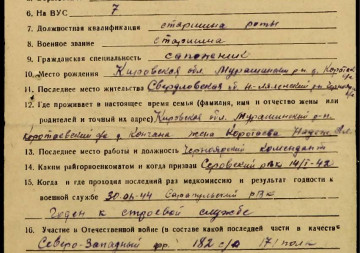 6. На ВУС 7
7. Должностная квалификация старшина роты
8. Военное звание старшина
9. Гражданская специальность сапожник
10. Место рождения Кировская обл. Мурашинский р-н д.
11. Последнее место жительства Свердловская обл. Н-Лялинский р-н
12. Где проживает в настоящее время семья (фамилия, имя и отчество жены или
родителей и точный их адрес) Кировская обл. Мурашинский р-н
д. Кончана жена Коротаева
13. Последнее место работы и должность комендант
14. Каким райгорвоенкоматом и когда призван Серовский РВК 14/I-42
15. Когда и где проходил последний раз медкомиссию и результат годности к
военной службе 30-04-44 Сарапульский РВК
Годен к строевой службе
16. Участие в Отечественной войне (в составе какой последней части в качестве
Северо-Западный фр. 182 с/д 171 полк